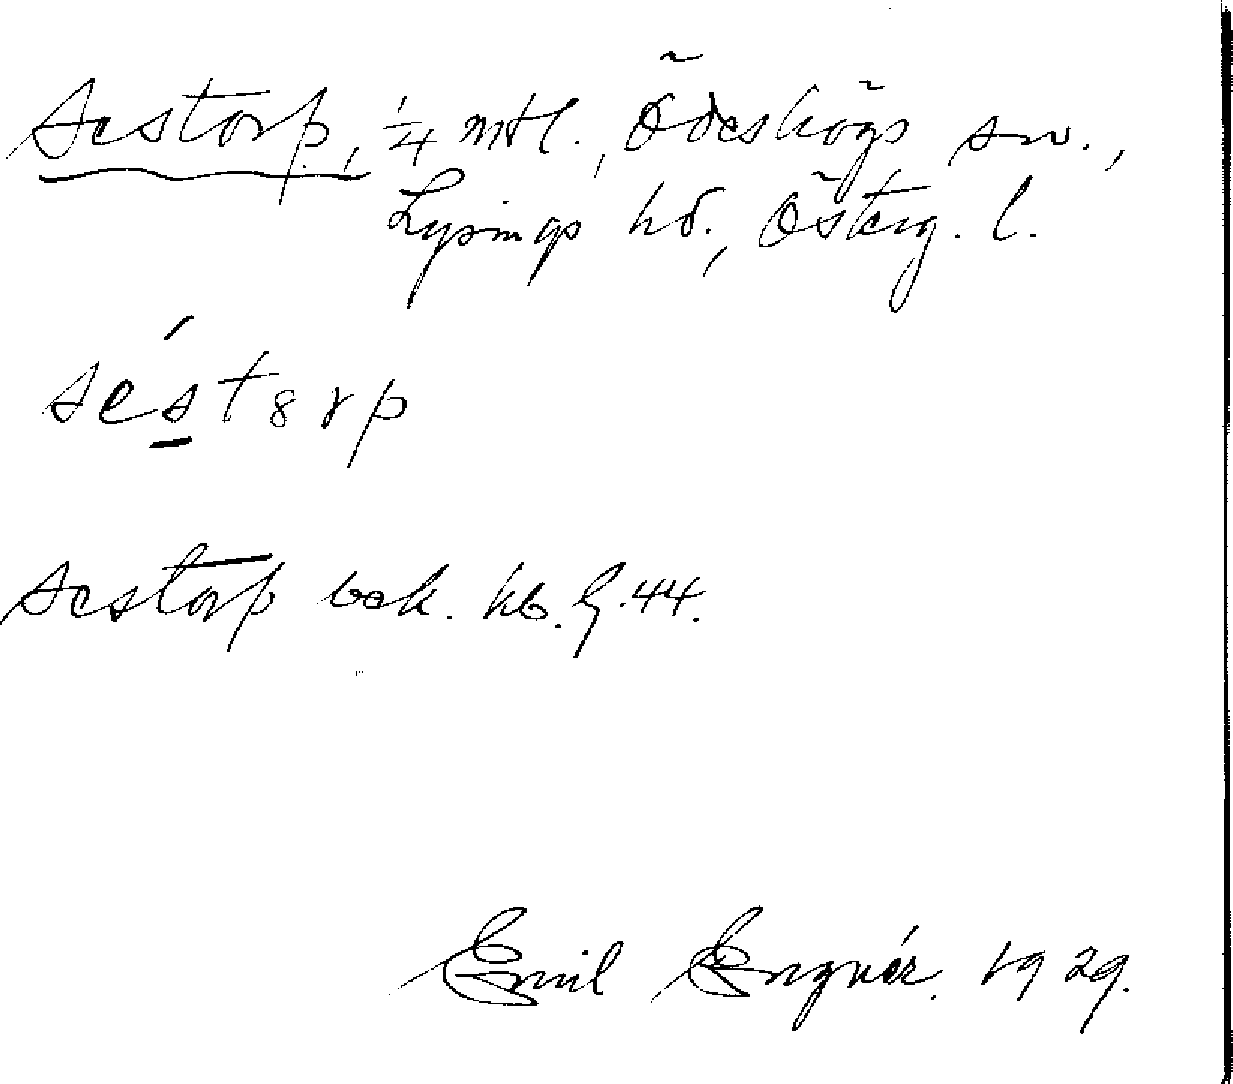 Sestorp, 1/4 mtl., Ödeshögs sn.,
Lysings hd., Österg. l.
séstɞrp
Sestorp bok. kb. G.44.
Emil Engnér. 1929.